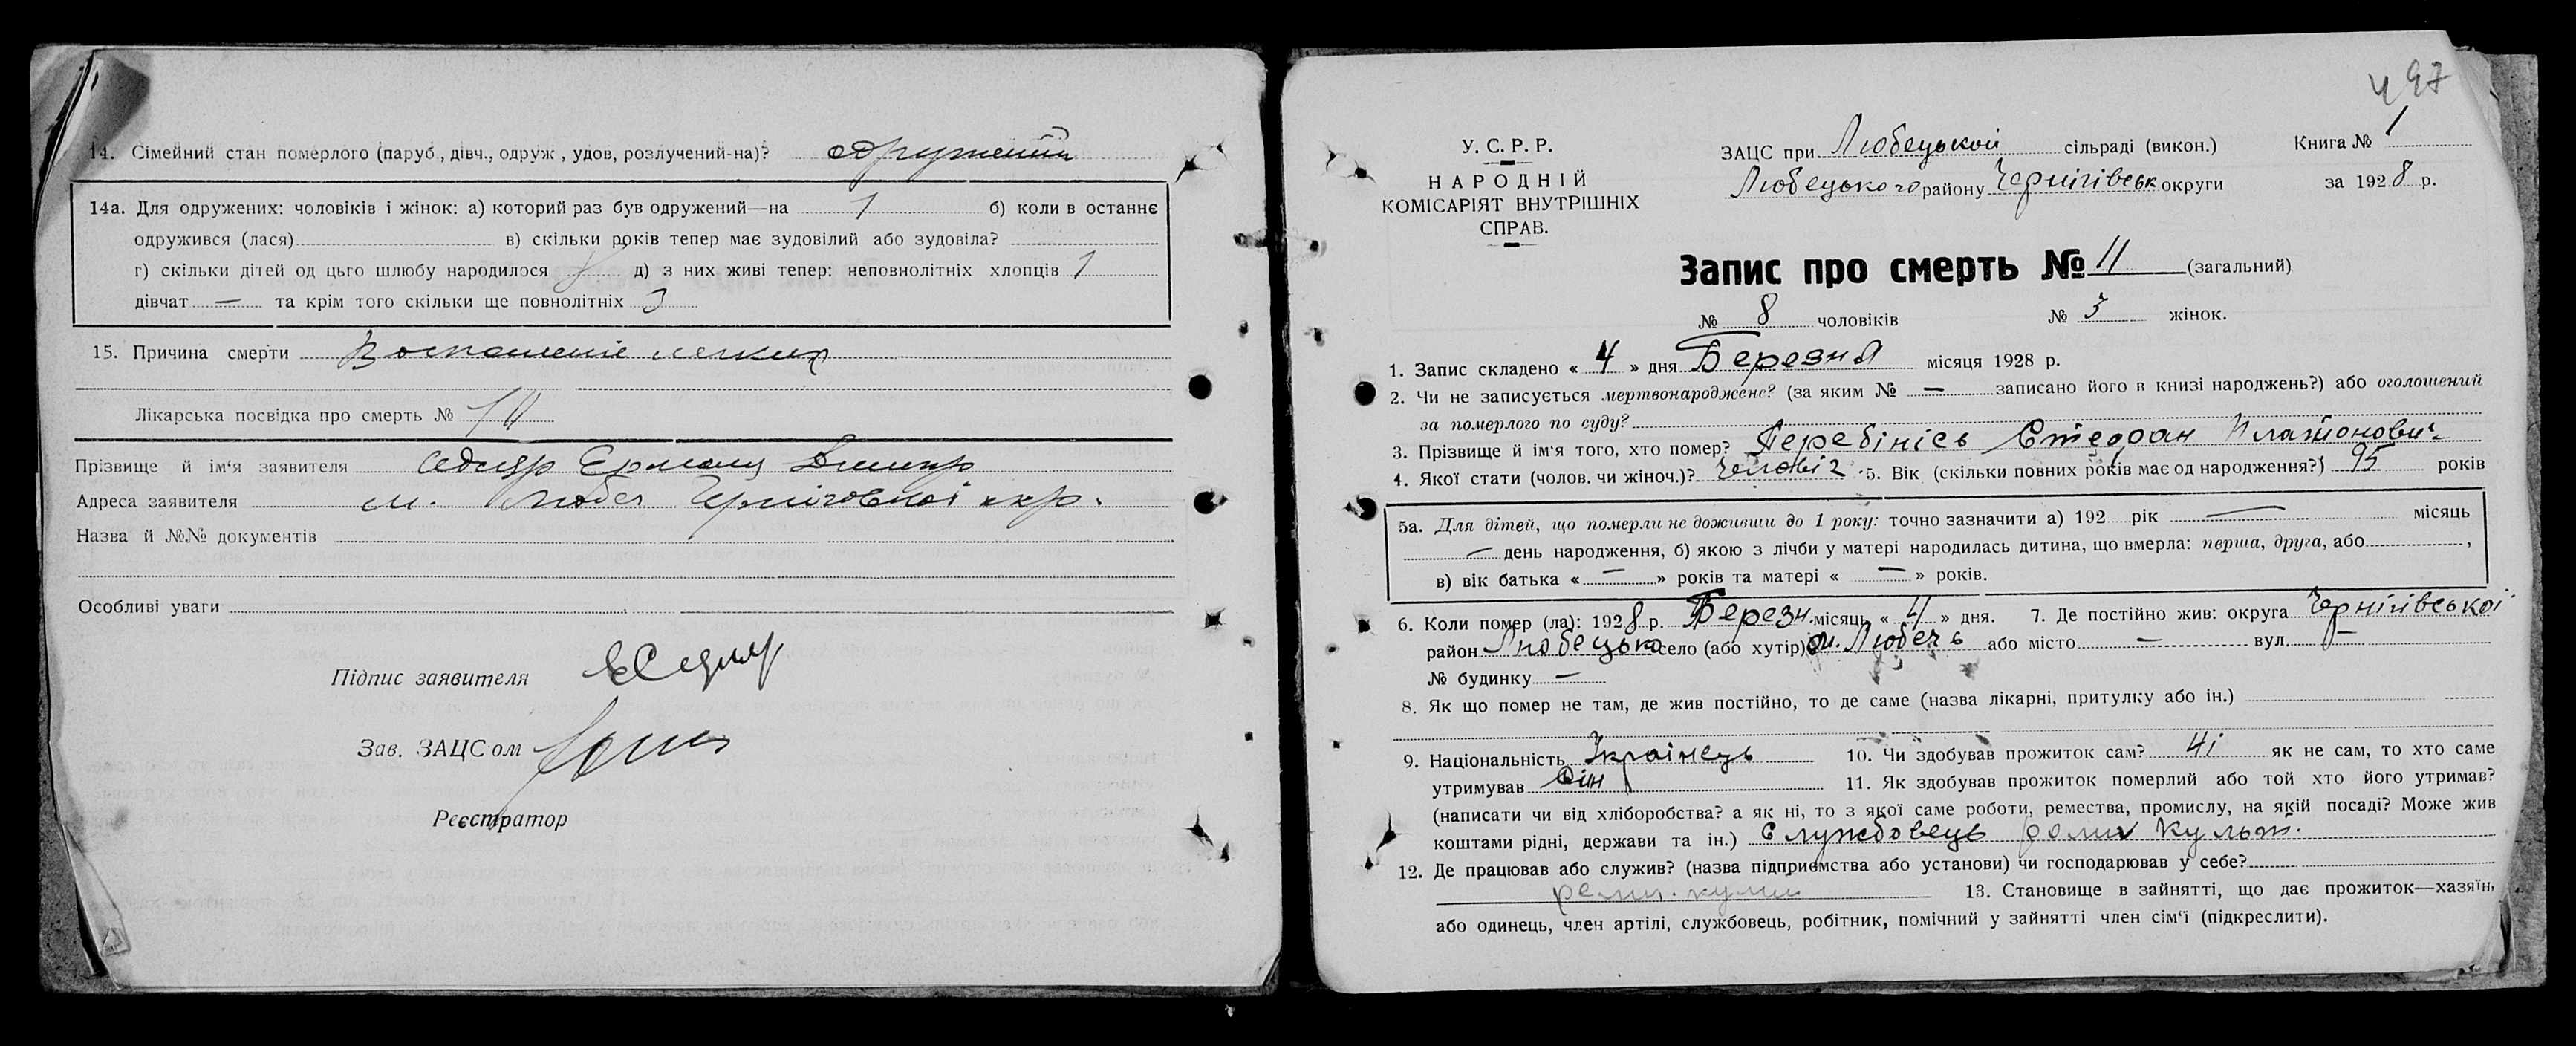 14. Сімейний стан померлого (паруб., дівч., одруж., удов, розлучений-на)? одружений
14а. Для одружених: чоловіків і жінок: а) который раз був одружений—на 1 б) коли в останнє
одружився (лася) в) скільки років тепер має зудовілий або зудовіла?
г) скільки дітей од цього шлюбу народилося д) з них живі тепер: неповнолітніх хлопців 1
дівчат — та крім того скільки ще повнолітніх 3
15. Причина смерти Воспаленіе легких
Лікарська посвідка про смерть №
Прізвище й ім'я заявителя
Адреса заявителя м. Любеч окр.
Назва й №№ документів
Особливі уваги
Підпис заявителя
Зав. ЗАЦС'ом
Реєстратор
497
У. С. Р. Р.
НАРОДНІЙ
КОМІСАРІЯТ ВНУТРІШНІХ
СПРАВ.
ЗАЦС при Любецькой сільраді (викон.) Книга № 1
Любецького району Чернігівськ округи за 1928 р.
Запис про смерть № 11 (загальний)
№ 8 чоловіків № 3 жінок.
1. Запис складено « 4 » дня Березня місяця 1928 р.
2. Чи не записується мертвонароджене? (за яким № — записано його в книзі народжень?) або оголошений
за померлого по суду?
3. Прізвище й ім'я того, хто помер? Перебінісь Стефан Платонович
4. Якої стати (чолов. чи жіноч.)? 5. Вік (скільки повних років має од народження?) 95 років
5а. Для дітей, що померли не доживши до 1 року: точно зазначити а) 192 рік — місяць
— день народження, б) якою з лічби у матері народилась дитина, що вмерла: перша, друга, або ,
в) вік батька « — » років та матері « — » років.
6. Коли помер (ла): 1928 р. Березн. місяць « 4 » дня. 7. Де постійно жив: округа Чернігівської
район Любецько село (або хутір) м. Любечь або місто — вул. —
№ будинку —
8. Як що помер не там, де жив постійно, то де саме (назва лікарні, притулку або ін.)
9. Національність Українець 10. Чи здобував прожиток сам? Ні як не сам, то хто саме
утримував Син 11. Як здобував прожиток померлий або той хто його утримав?
(написати чи від хліборобства? а як ні, то з якої саме роботи, ремества, промислу, на якій посаді? Може жив
коштами рідні, держави та ін.) Службовець религ культ.
12. Де працював або служив? (назва підприємства або установи) чи господарював у себе?
13. Становище в зайнятті, що дає прожиток—хазяїн,
або одинець, член артілі, службовець, робітник, помічний у зайнятті член сім'ї (підкреслити).